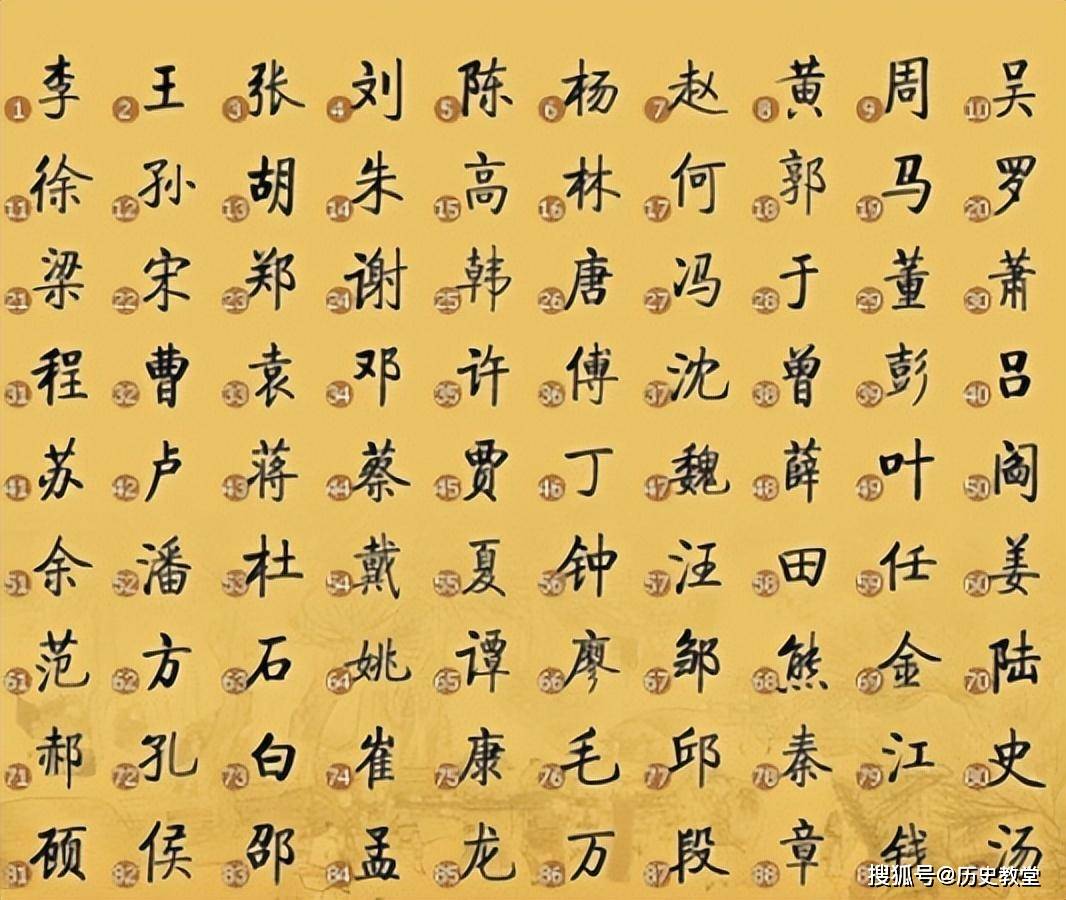 1李 2王 3张 4刘 5陈 6杨 7赵 8黄 9周 10吴
11徐 12孙 13胡 14朱 15高 16林 17何 18郭 19马 20罗
21梁 22宋 23郑 24谢 25韩 26唐 27冯 28于 29董 30萧
31程 32曹 33袁 34邓 35许 36傅 37沈 38曾 39彭 40吕
41苏 42卢 43蒋 44蔡 45贾 46丁 47魏 48薛 49叶 50阎
51余 52潘 53杜 54戴 55夏 56钟 57汪 58田 59任 60姜
61范 62方 63石 64姚 65谭 66廖 67邹 68熊 69金 70陆
71郝 72孔 73白 74崔 75康 76毛 77邱 78秦 79江 80史
81顾 82侯 83邵 84孟 85龙 86万 87段 88章 钱 汤
搜狐号@历史教堂